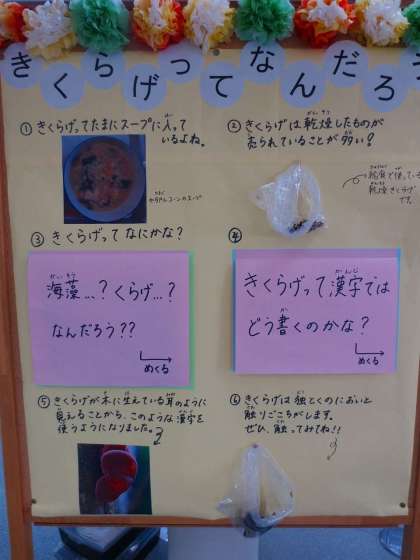 きくらげってなんだろう
①きくらげってたまにスープに入って
いるよね。
②きくらげは乾燥したものが
売られていることが多い?
乾燥きくらげ
です。
③きくらげってなにかな?
④
海藻…?くらげ…?
なんだろう??
めくる
きくらげって漢字では
どう書くのかな?
めくる
⑤きくらげが木に生えている耳のように
見えることから、このような漢字を
使うようになりました。
⑥きくらげは独とくのにおいと
触りごこちがします。
ぜひ、触ってみてね!!